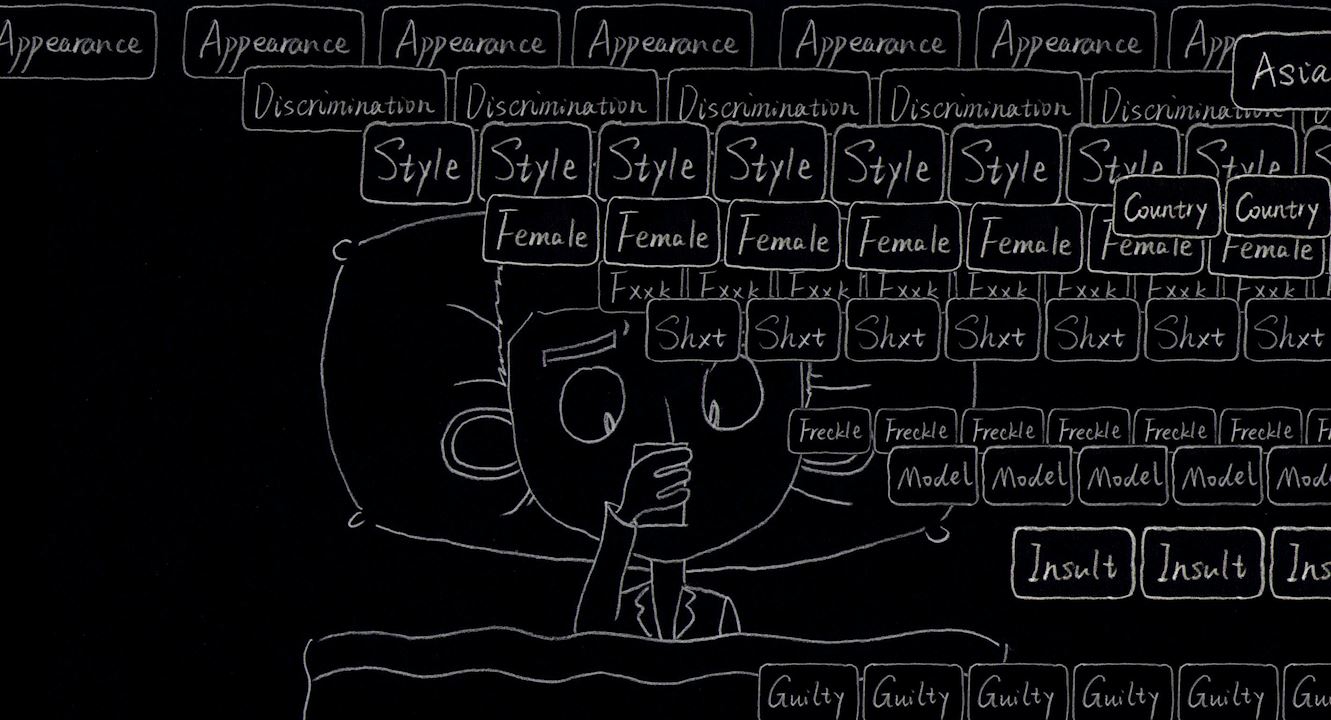 Appearance Appearance Appearance Appearance Appearance Appearance App
Asia
Discrimination Discrimination Discrimination Discrimination Discrimination D
Style Style Style Style Style Style Style Style S
Country Country
Female Female Female Female Female Female Female
Fxxk Fxxk Fxxk Fxxk Fxxk Fxxk Fxxk Fxxk
Shxt Shxt Shxt Shxt Shxt Shxt Shxt
Freckle Freckle Freckle Freckle Freckle Freckle Fr
Model Model Model Model Mod
Insult Insult Ins
Guilty Guilty Guilty Guilty Guilty Gu